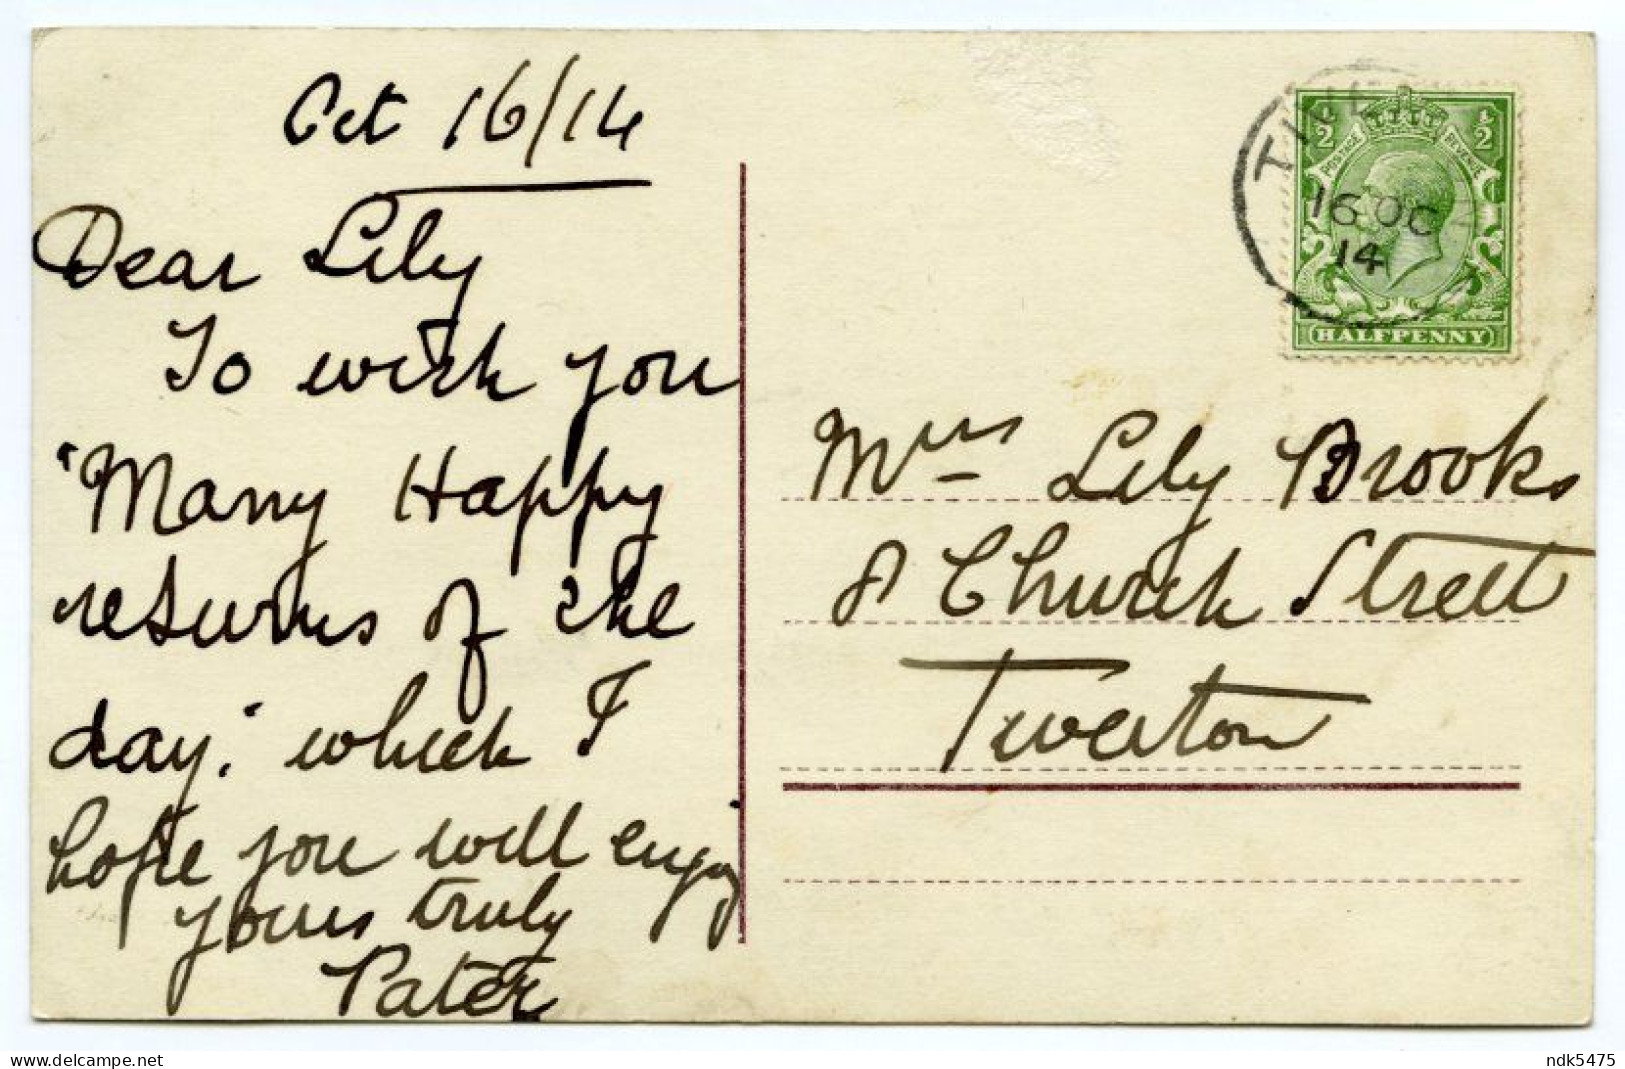 Oct 16/14
Dear Lily
To wish you
"Many Happy
returns of the
day," which I
hope you will enjoy
yours truly
Pater
16 OC
14
1/2 1/2
POSTAGE REVENUE
HALFPENNY
Mrs Lily Brooks
8 Church Street
Tiverton
ndk5475